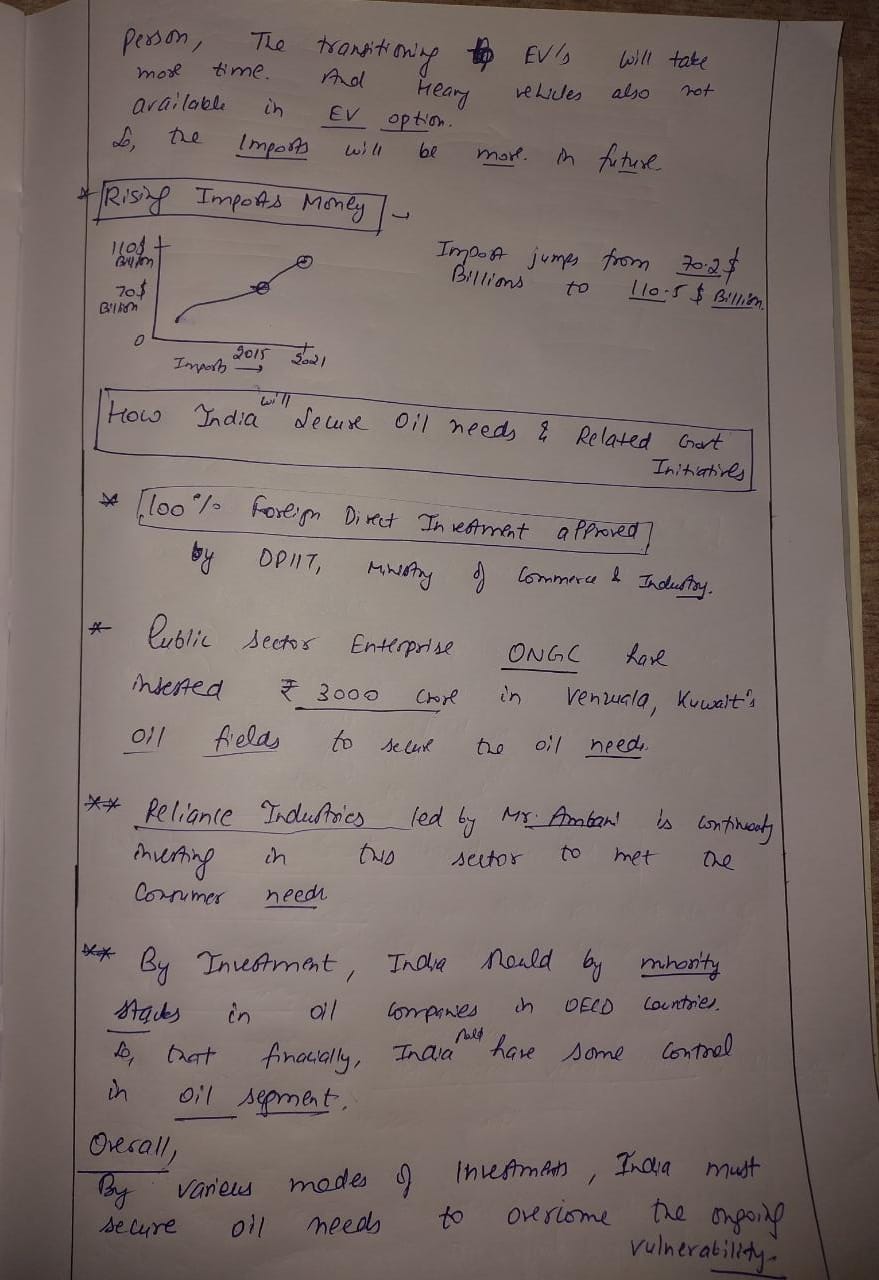 person, The transitioning EV's will take
more time. And Heavy vehicles also not
available in EV option.
So, the Imports will be more. in future.
* Rising Imports Money
110$
Billion
70$
Billion
0
2015
2021
Imports →
Import jumps from 70.2$
Billions to 110.5 $ Billion.
How India will Secure Oil needs & Related Govt
Initiatives
* 100% Foreign Direct Investment approved
by DPIIT, Ministry of Commerce & Industry.
* Public Sector Enterprise ONGC have
₹ 3000 crore in Kuwait's
oil fields to secure the oil needs.
** Reliance Industries led by Mr. Ambani is
investing in this sector to met the
Consumer needs
** By Investment, India should by minority
in oil companies in OECD countries.
So, that finacially, India have some control
in oil segment.
Overall,
By various modes of Investments, India must
secure oil needs to overcome the ongoing
vulnerability.